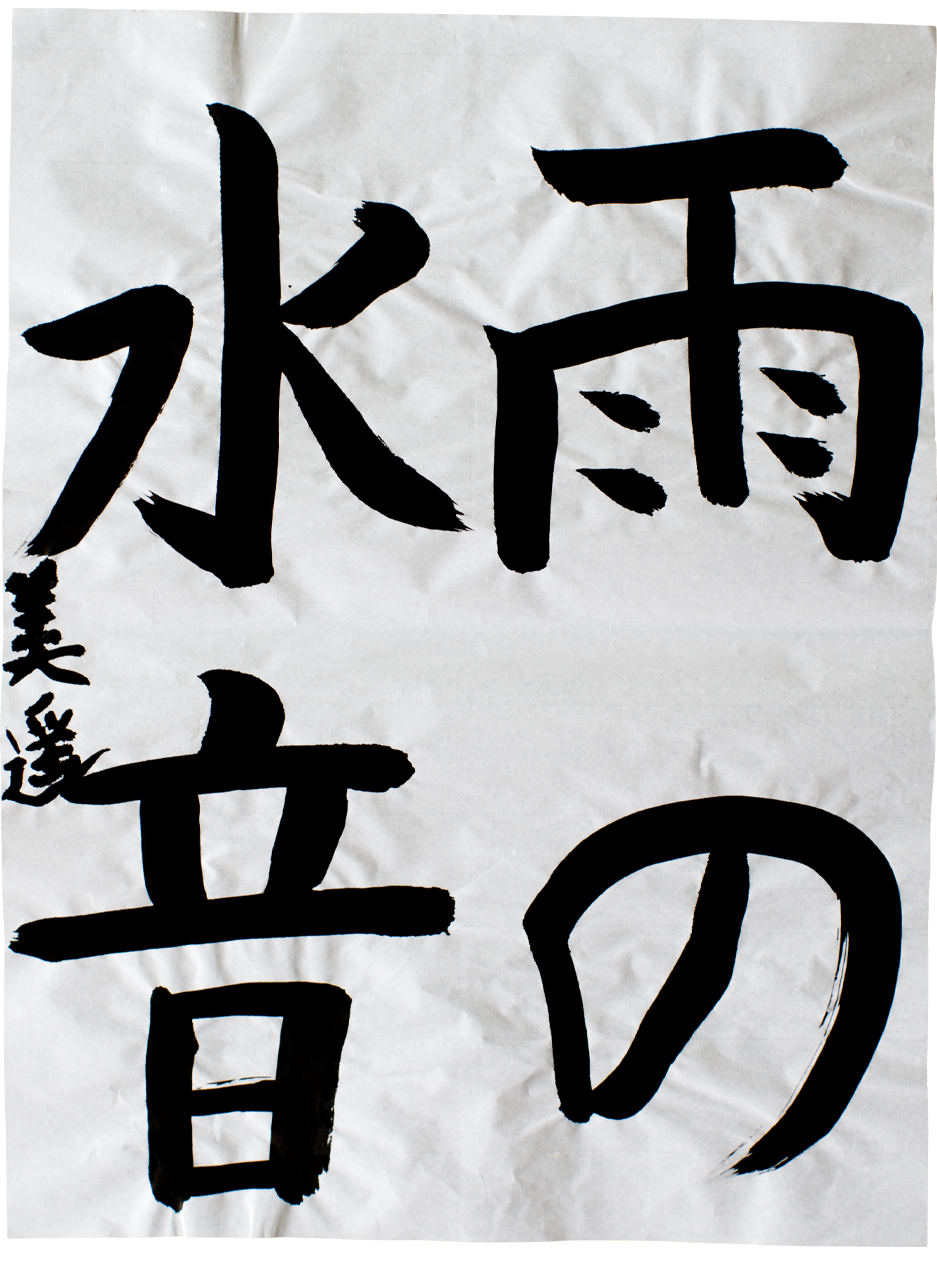 雨の
水音
美遥